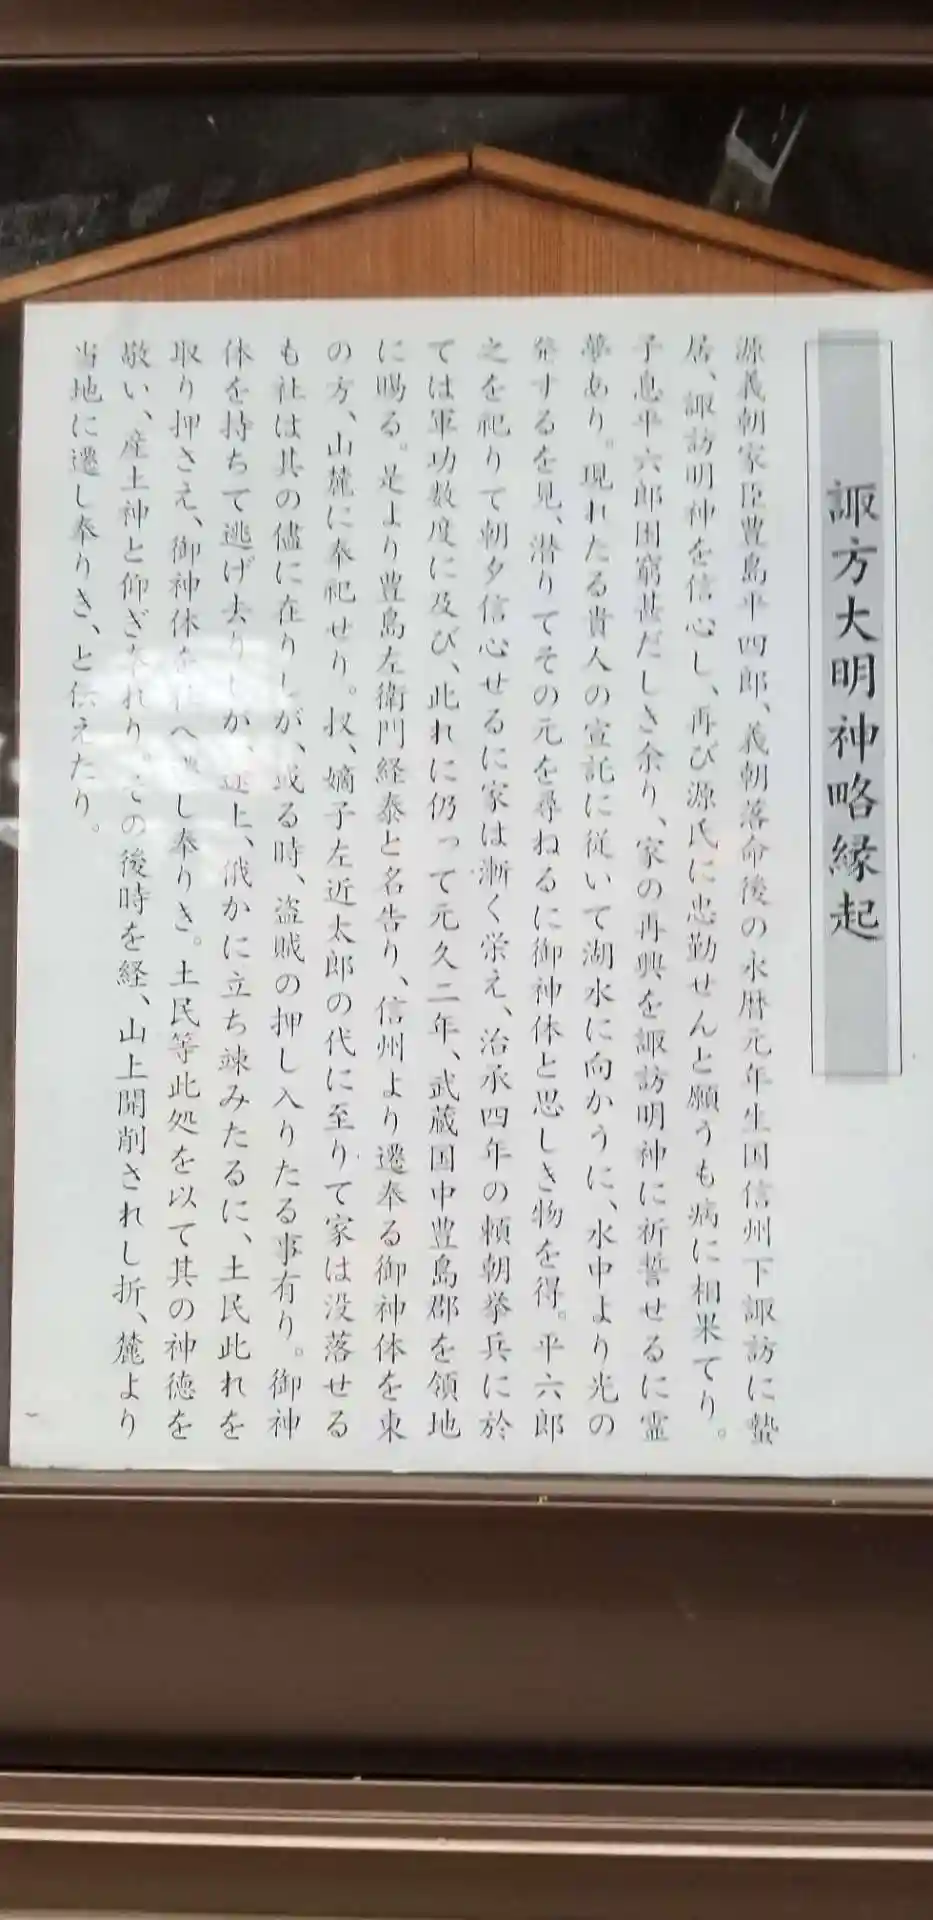 諏方大明神略縁起
源義朝家臣豊島平四郎、義朝落命後の永暦元年生国信州下諏訪に蟄
居、諏訪明神を信心し、再び源氏に忠勤せんと願うも病に相果てり。
子息平六郎困窮甚だしき余り、家の再興を諏訪明神に祈誓せるに霊
夢あり。現れたる貴人の宣託に従いて湖水に向かうに、水中より光の
発するを見、潜りてその元を尋ねるに御神体と思しき物を得。平六郎
之を祀りて朝夕信心せるに家は漸く栄え、治承四年の頼朝挙兵に於
ては軍功数度に及び、此れに仍って元久二年、武蔵国中豊島郡を領地
に賜る。是より豊島左衛門経泰と名告り、信州より遷奉る御神体を東
の方、山麓に奉祀せり。扨、嫡子左近太郎の代に至りて家は没落せる
も社は其の儘に在りしが、或る時、盗賊の押し入りたる事有り。御神
体を持ちて逃げ去りしが、途上、俄かに立ち竦みたるに、土民此れを
取り押さえ、御神体を へ し奉りき。土民等此処を以て其の神徳を
敬い、産土神と仰ぎ奉れり。この後時を経、山上開削されし折、麓より
当地に遷し奉りき、と伝えたり。